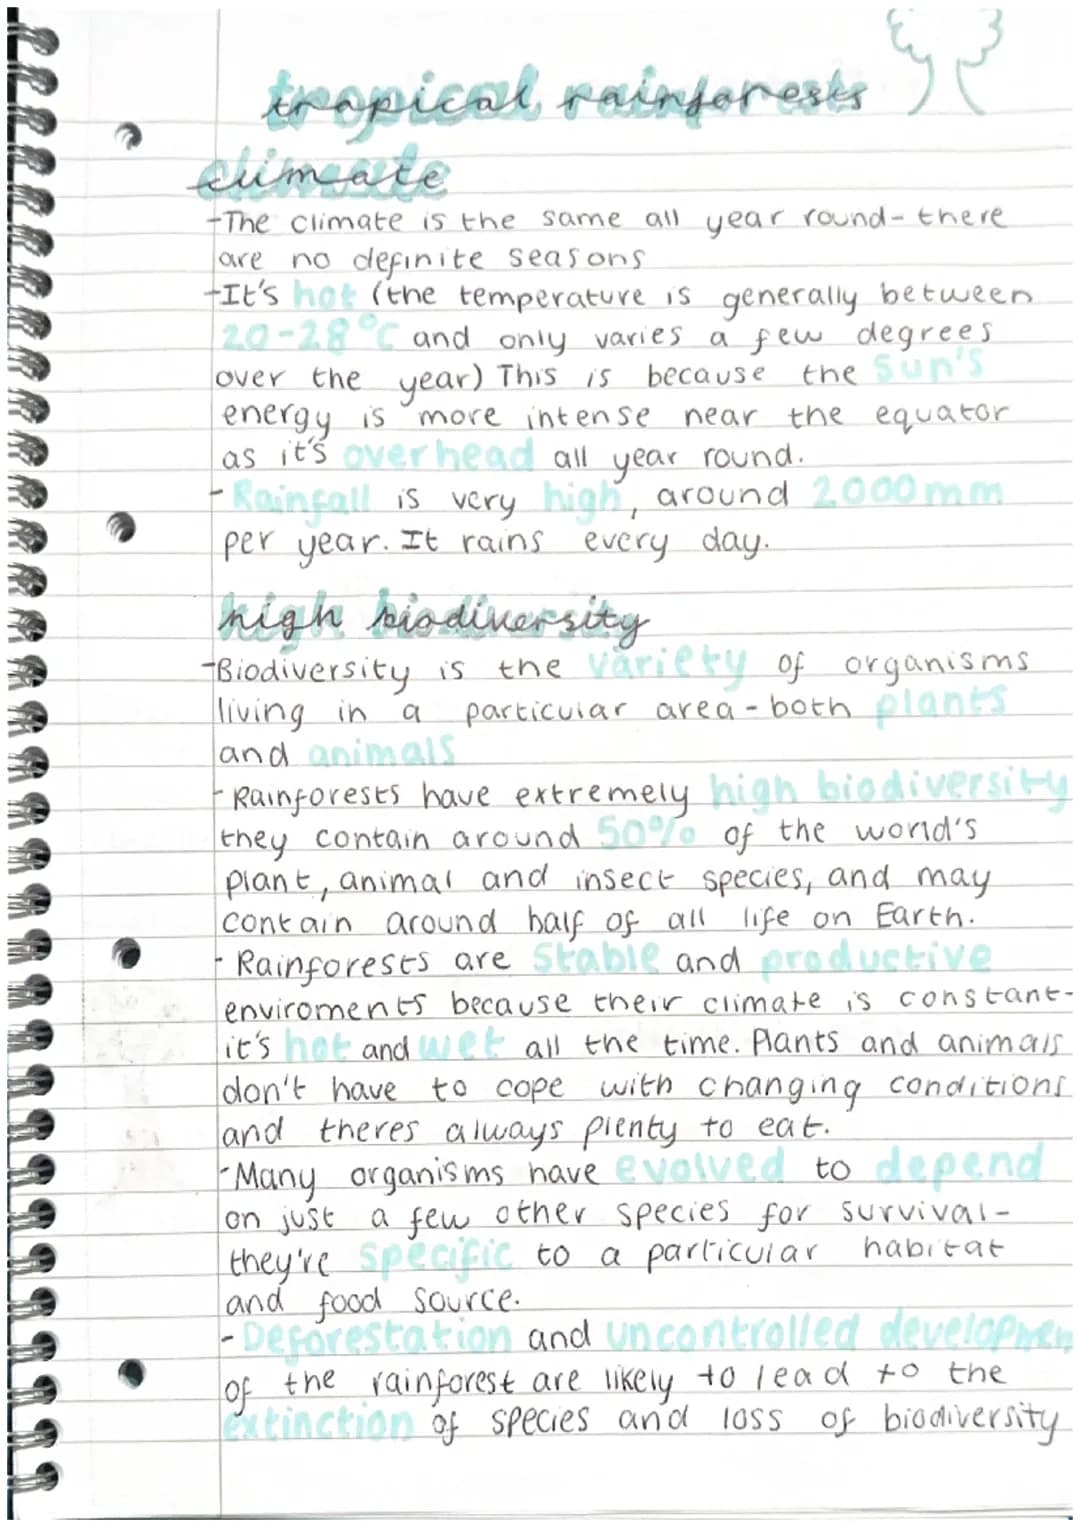 tropical rainforests
climate
-The climate is the same all year round- there
are no definite seasons
-It's hot (the temperature is generally between
20-28°C and only varies a few degrees
over the year) This is because the sun's
energy is more intense near the equator
as it's overhead all year round.
- Rainfall is very high, around 2000mm
per year. It rains every day.
high biodiversity
-Biodiversity is the variety of organisms
living in a particular area - both plants
and animals
- Rainforests have extremely high biodiversity
they contain around 50% of the world's
plant, animal and insect species, and may
contain around half of all life on Earth.
- Rainforests are stable and productive
enviroments because their climate is constant-
it's hot and wet all the time. Plants and animals
don't have to cope with changing conditions
and theres always plenty to eat.
-Many organisms have evolved to depend
on just a few other species for survival-
they're specific to a particular habitat
and food source.
- Deforestation and uncontrolled developmen
of the rainforest are likely to lead to the
extinction of species and loss of biodiversity